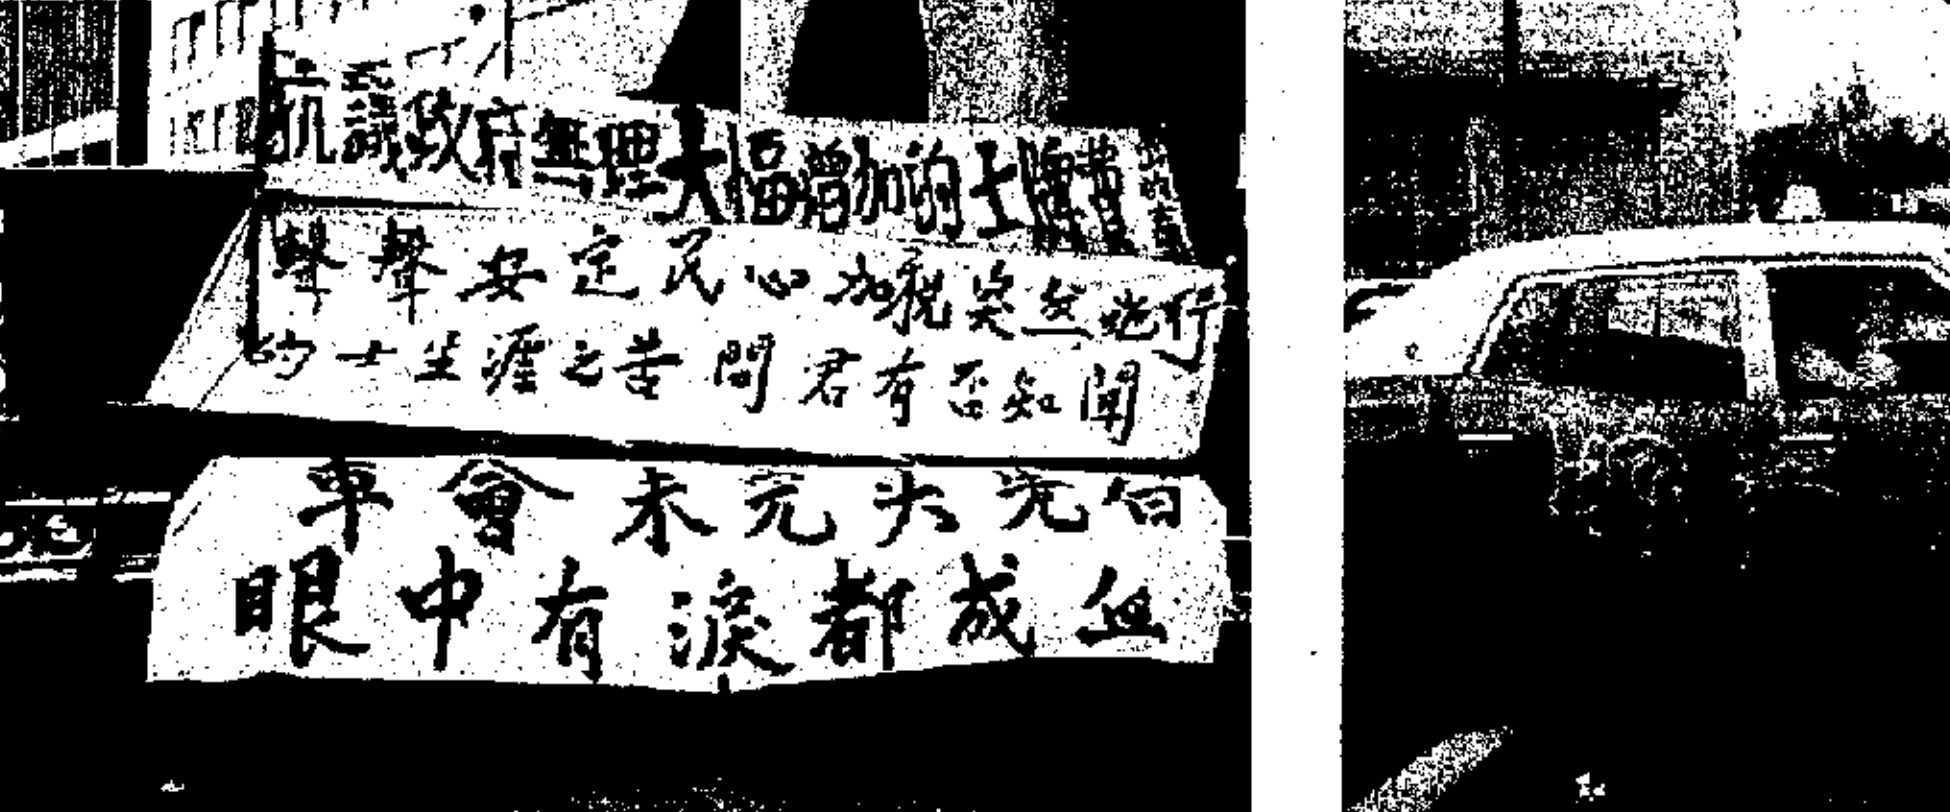 抗議政府無理大幅增加的士牌費
聲聲安定民心加稅突然施行
的士生涯之苦問君有否知聞
車會未完頭先白
眼中有淚都成血